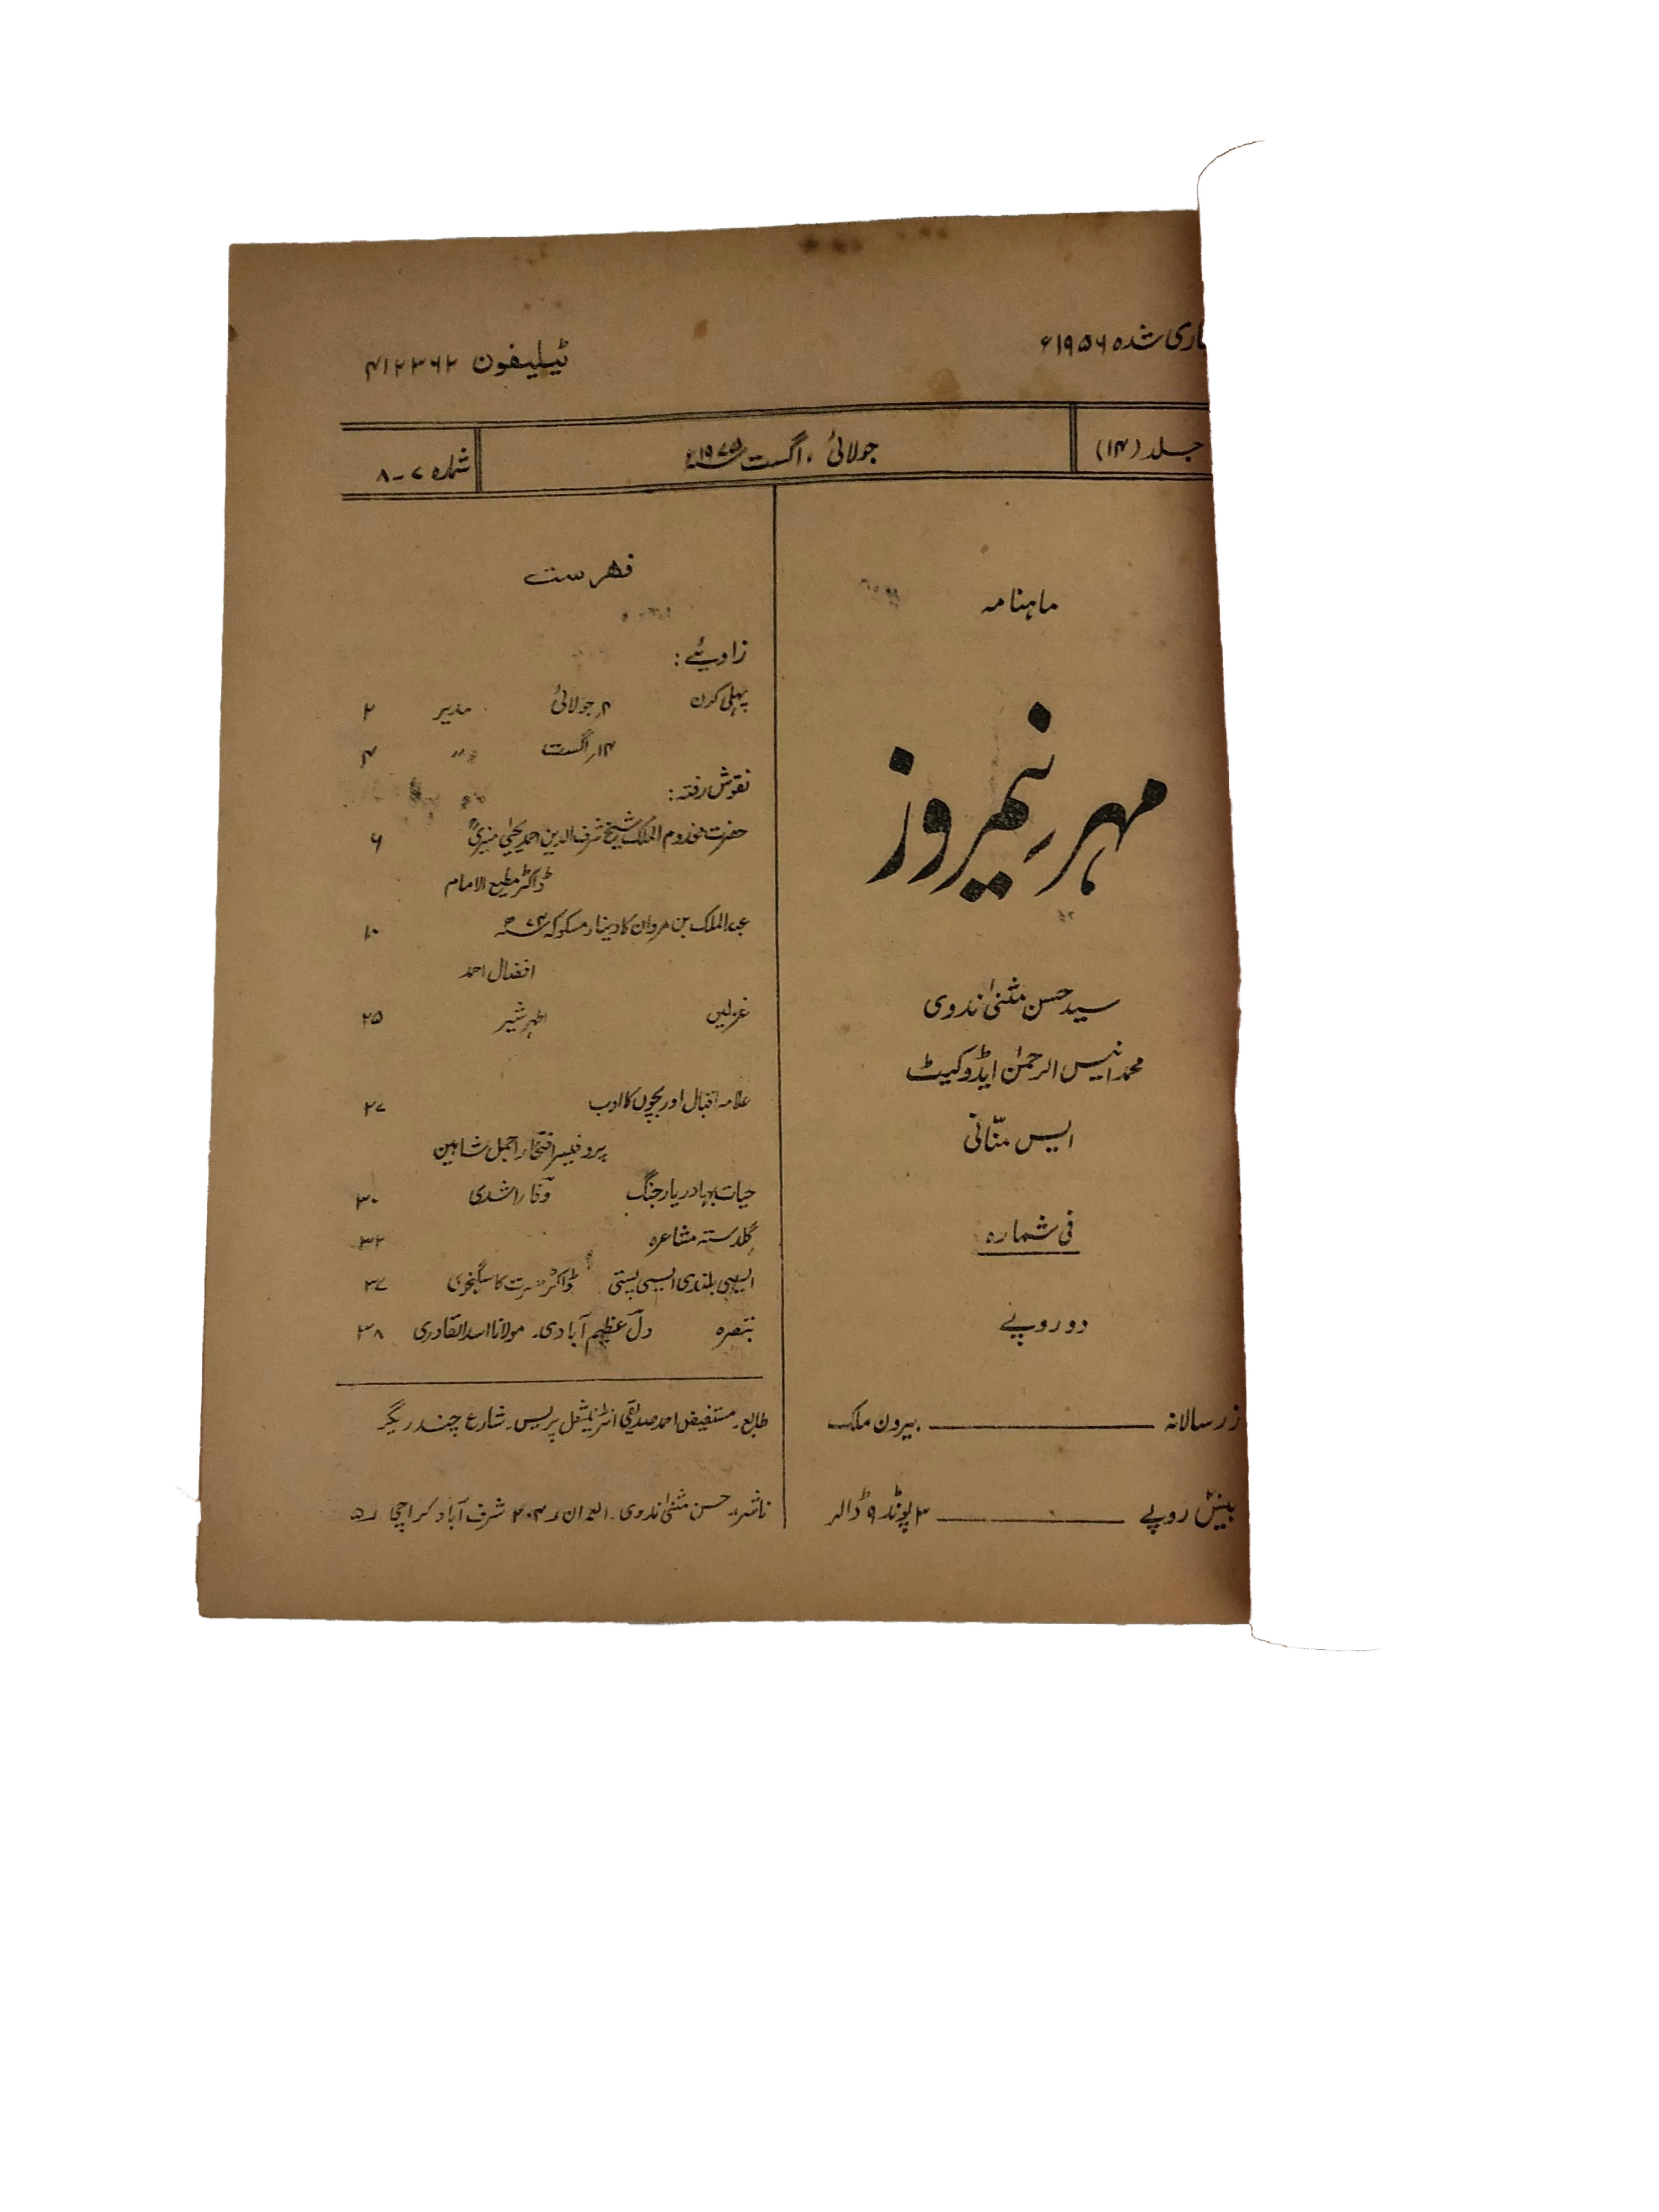 جاری شدہ ۱۹۵۶ء
ٹیلیفون ۴۱۲۳۶۲
جلد (۱۴)
جولائی، اگست ۱۹۷۵ء
شمارہ ۷-۸
ماہنامہ
مہرِ نیمروز
سید حسن مثنیٰ ندوی
محمد انیس الرحمٰن ایڈوکیٹ
ایس منّانی
فی شمارہ
دو روپے
زر سالانہ ـــــــ بیرون ملک
بیس روپے ـــــــ ۳ پونڈ ۹ ڈالر
فہرست
زاویئے :
پہلی کرن ۴ر جولائی مدیر ۲
۱۴ر اگست " ۴
نقوش رفتہ :
حضرت مخدوم الملک شیخ شرف الدین احمد یحییٰ منیریؒ ۶
ڈاکٹر مطیع الامام
عبدالملک بن مروان کا دینار مسکوکہ ۷۴ھ ۱۰
افضال احمد
غزلیں اطہر شیر ۲۵
علامہ اقبال اور بچوں کا ادب ۲۷
پروفیسر افتخار اجمل شاہین
حیات بہادر یار جنگ وفا راشدی ۳۰
گلدستہ مشاعرہ ۳۲
ایسی بلندی ایسی پستی ڈاکٹر حسرت کاسگنجوی ۳۷
تبصرہ دل عظیم آبادی۔ مولانا اسد القادری ۳۸
طابع۔ مستفیض احمد صدیقی انٹرنیشنل پریس۔ شارع چندریگر
ناشر:۔ حسن مثنیٰ ندوی۔ العمران ۲۰۴ شرف آباد کراچی ۵